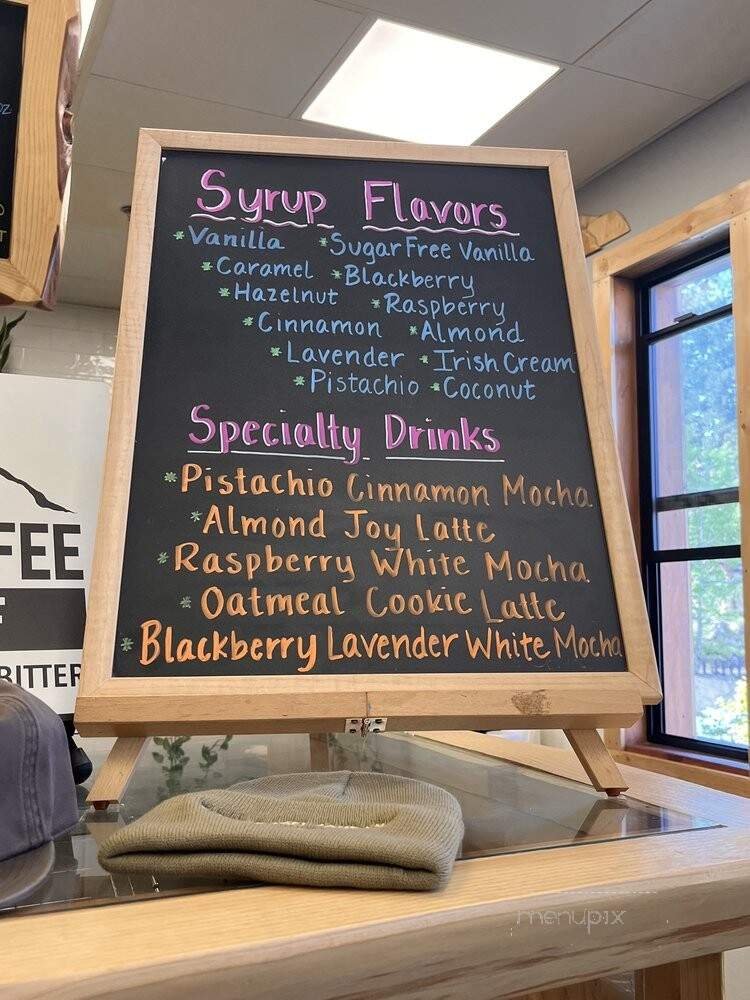 Syrup Flavors
*Vanilla *SugarFree Vanilla
*Caramel *Blackberry
*Hazelnut *Raspberry
*Cinnamon *Almond
*Lavender *Irish Cream
*Pistachio *Coconut
Specialty Drinks
*Pistachio Cinnamon Mocha
*Almond Joy Latte
*Raspberry White Mocha
*Oatmeal Cookie Latte
*Blackberry Lavender White Mocha
FEE
F
BITTER
oz
menupix